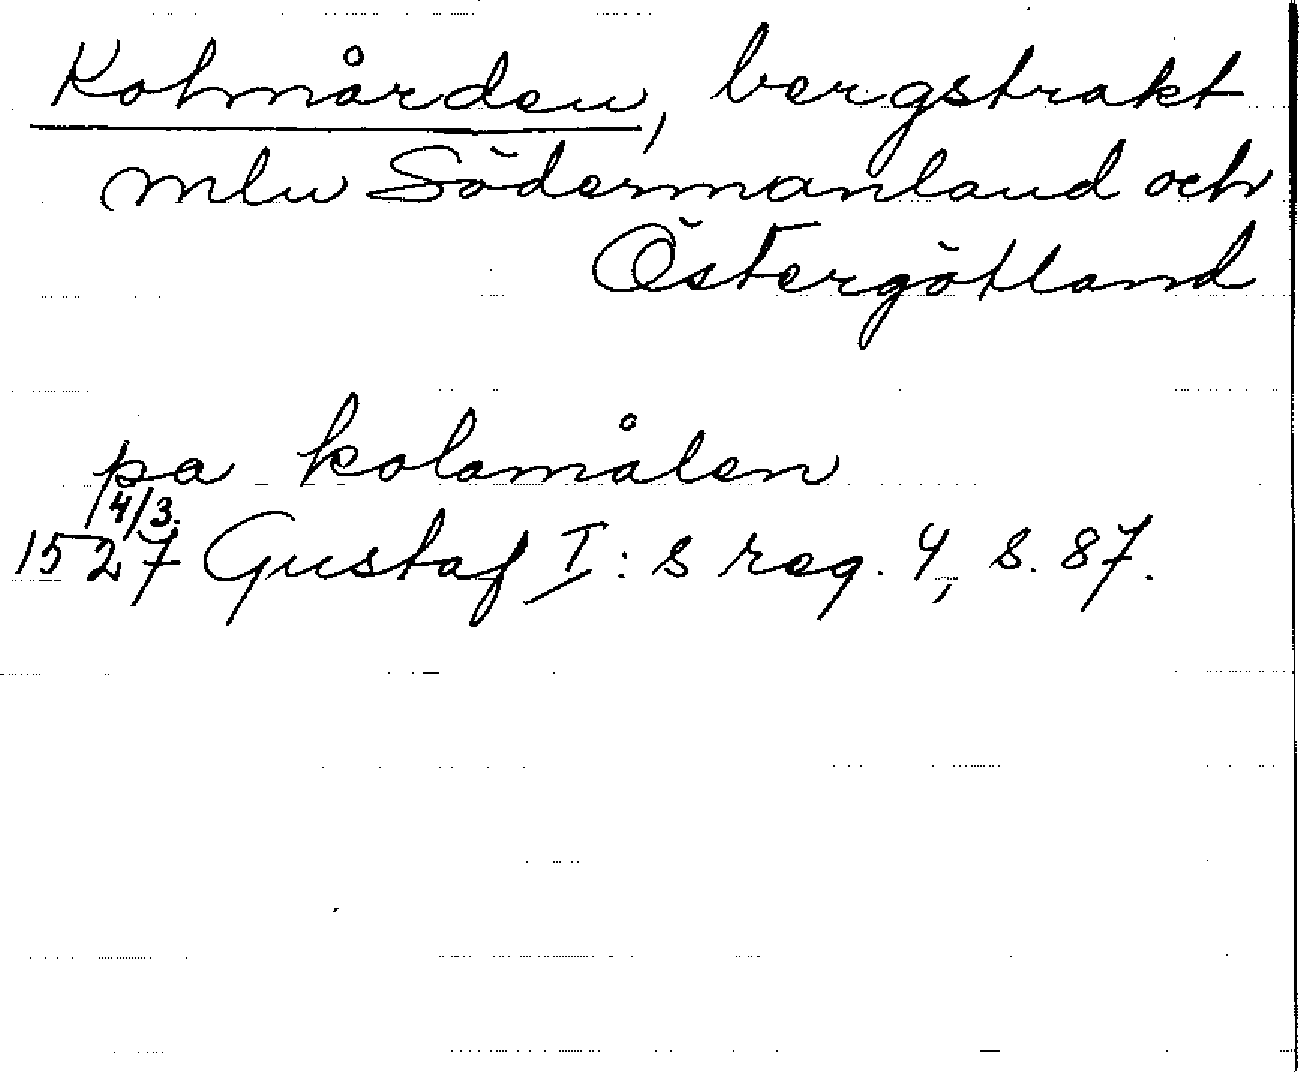 Kolmården, bergstrakt
mlu Södermanland och
Östergötland
pa kolamålen
14/3.
1527 Gustaf I:s reg. 4, s. 87.